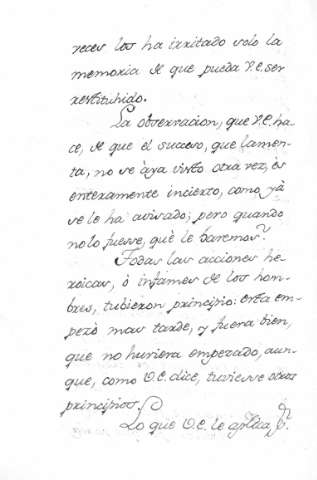 reces los ha irritado solo la
memoria de que pueda V.E. ser
restituhido.
La observacion, que V.E. ha-
ce, de que el sucesso, que lamen-
ta, no se àya visto otra vez, ès
enteramente incierto, como yà
se le ha avisado; pero quando
no lo fuesse, què le haremos?
Todas las acciones he-
roicas, ò infames de los hom-
bres, tubieron principio: esta em-
pezò mas tarde, y fuera bien,
que no huviera empezado, aun-
que, como V.E. dice, tuviesse otros
principios.
Lo que V.E. le aplica,